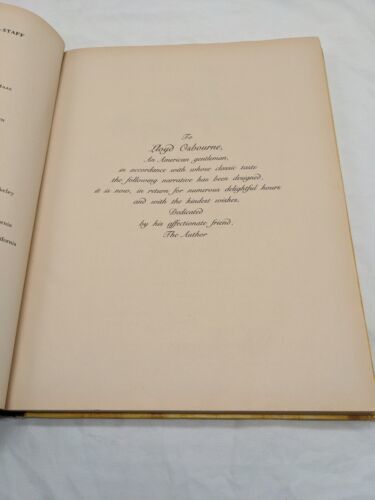 STAFF
To
Lloyd Osbourne,
An American gentleman,
in accordance with whose classic taste
the following narrative has been designed,
it is now, in return for numerous delightful hours
and with the kindest wishes,
Dedicated
by his affectionate friend,
The Author